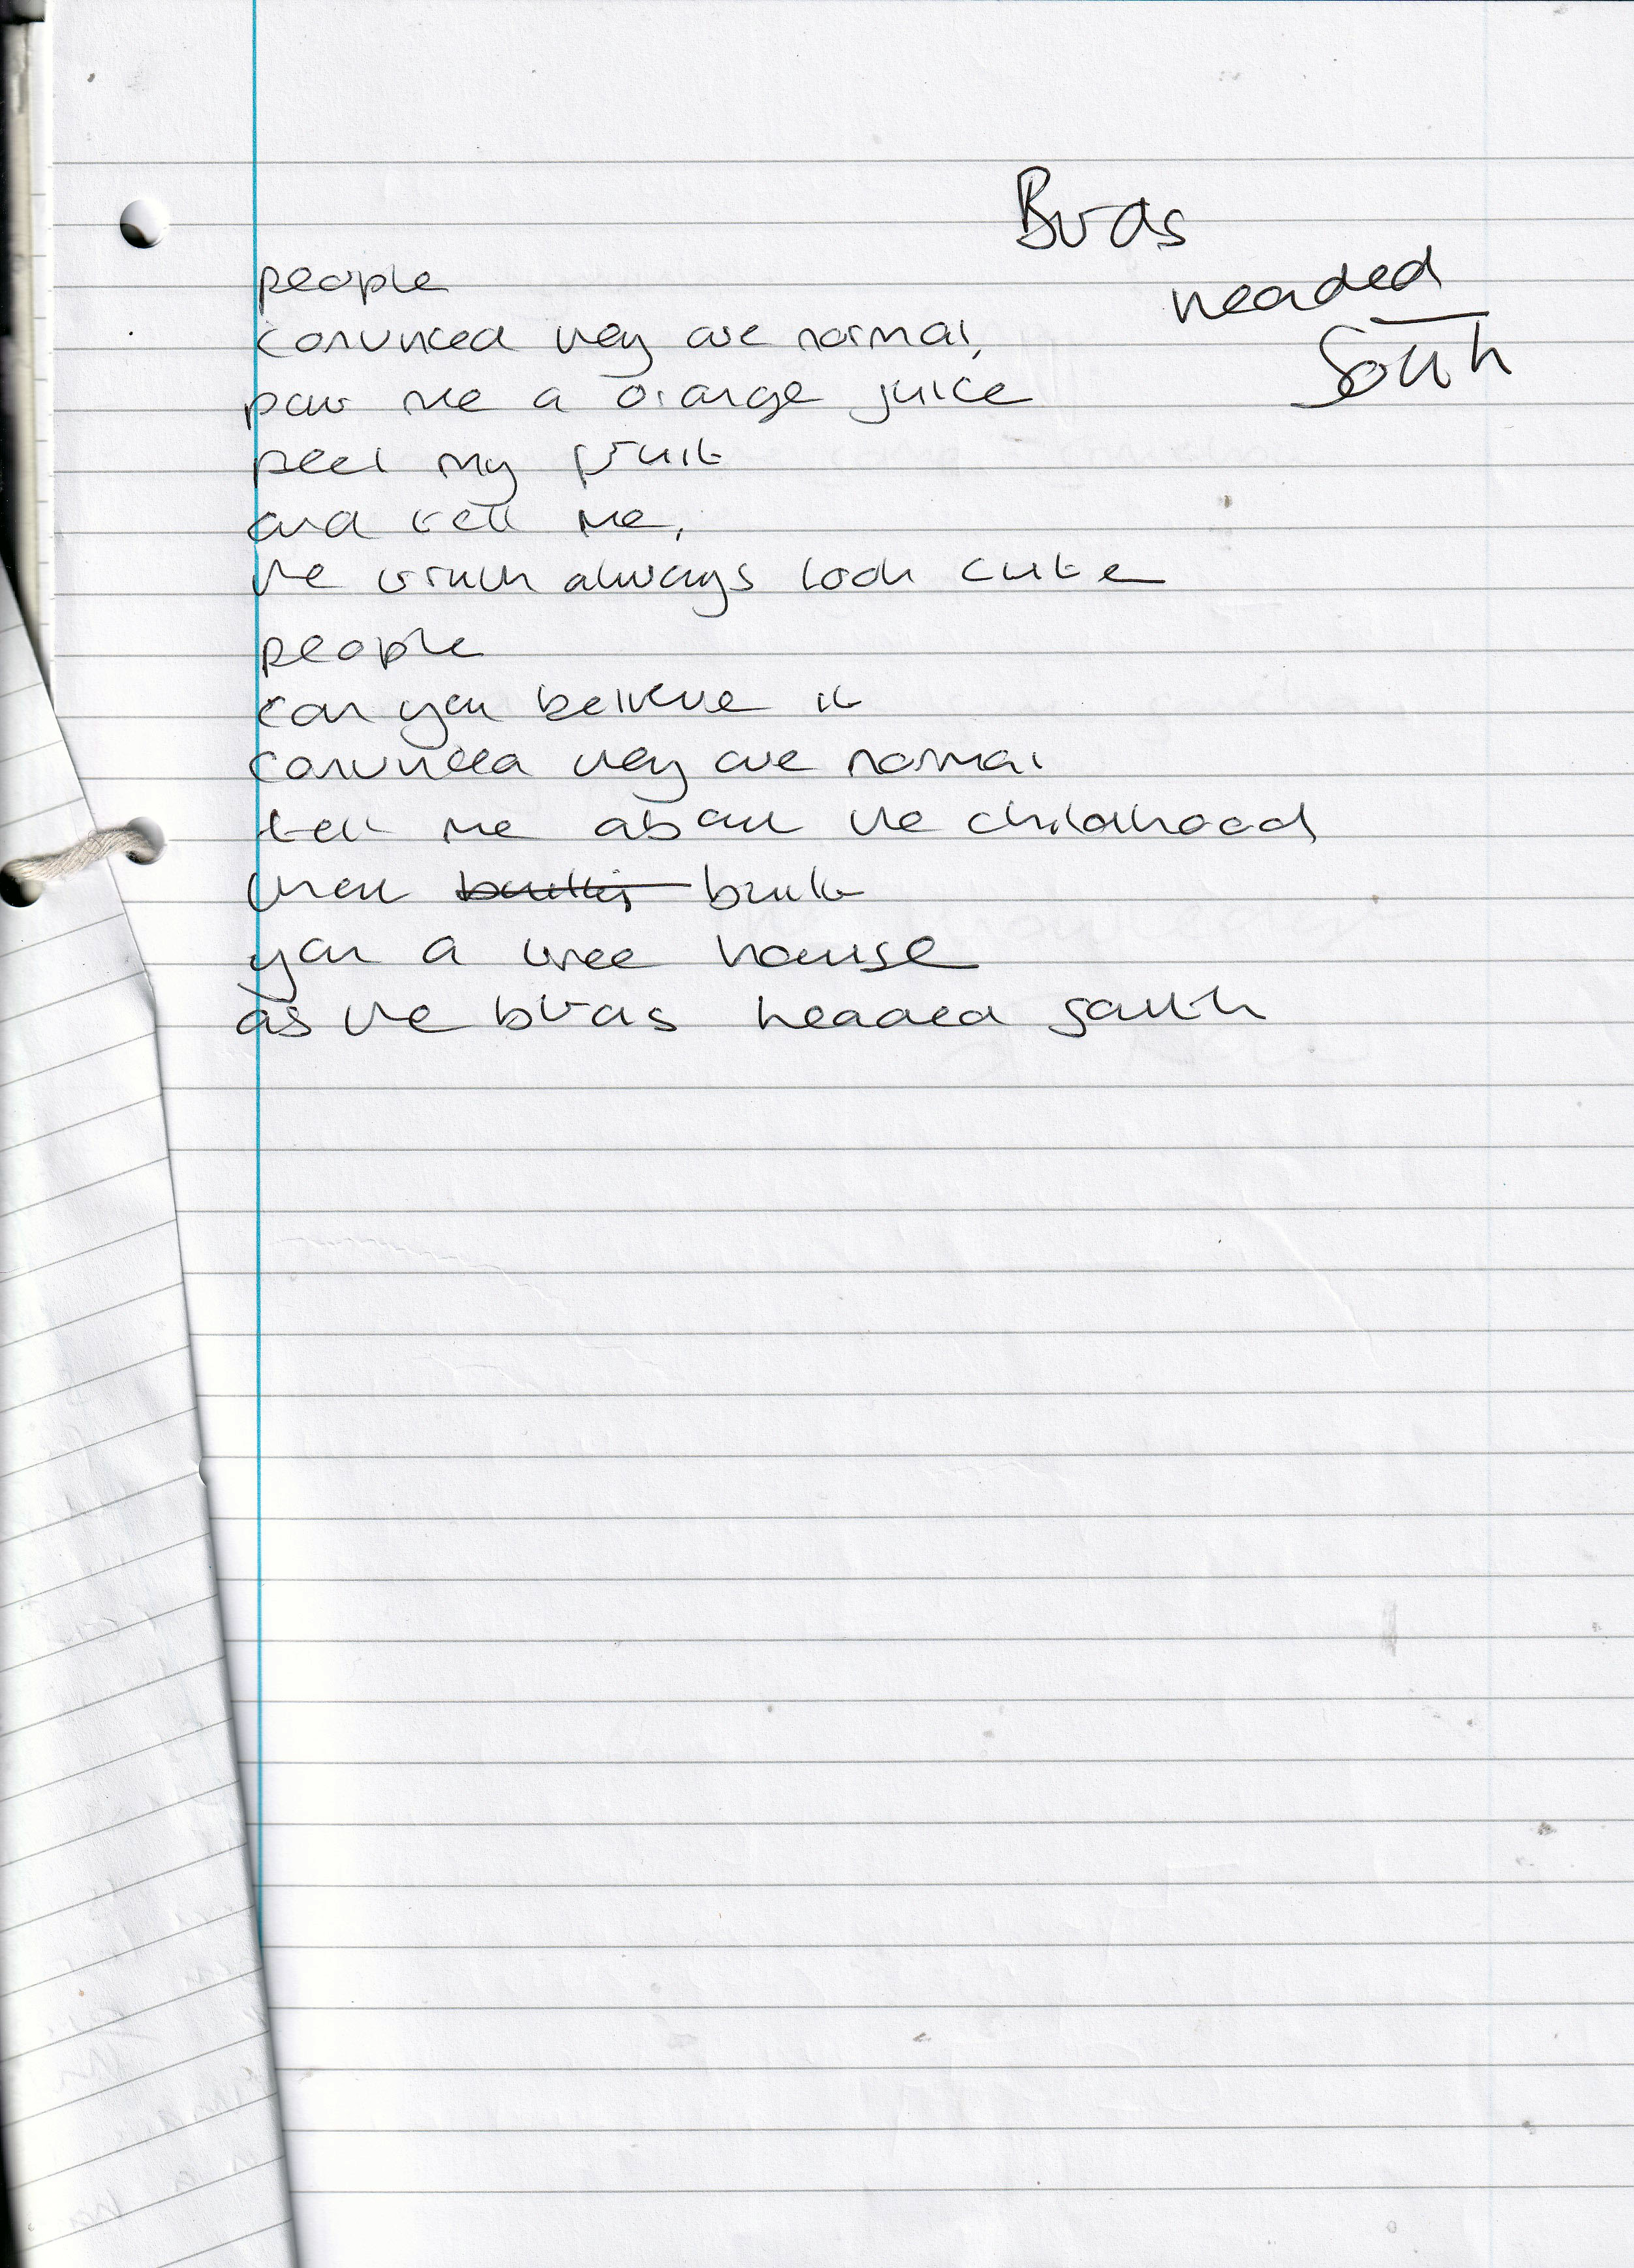 Birds
headed
South
people
convinced they are normal,
pour me a orange juice
peel my fruit
and tell me,
the truth always look cute
people
can you believe it
convinced they are normal
tell me about the childhood
that built
you a tree house
as the birds headed south